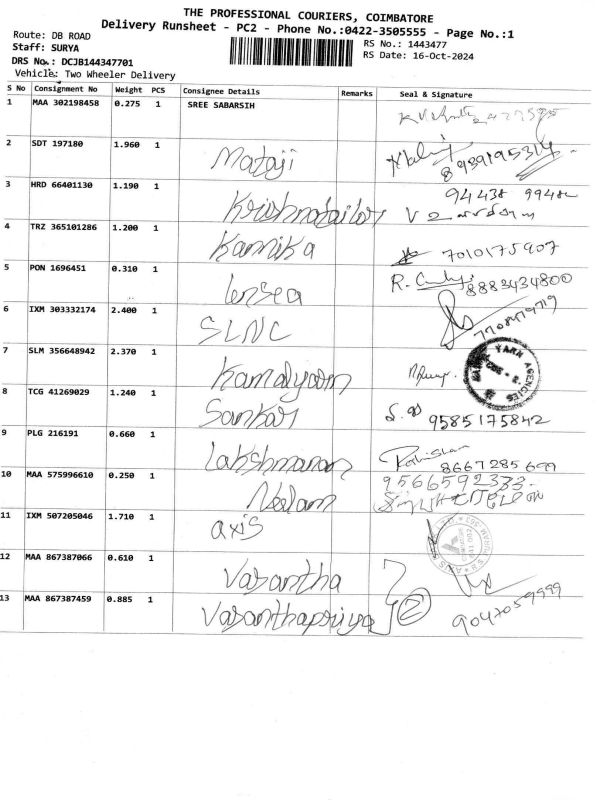 THE PROFESSIONAL COURIERS, COIMBATORE
Delivery Runsheet - PC2 - Phone No.:0422-3505555 - Page No.:1
Route: DB ROAD
RS No.: 1443477
Staff: SURYA
RS Date: 16-Oct-2024
DRS No.: DCJB144347701
Vehicle: Two Wheeler Delivery
S No Consignment No Weight PCS Consignee Details Remarks Seal & Signature
1 MAA 302198458 0.275 1 SREE SABARSIH
2 SDT 197180 1.960 1 Mataji 8939195314
3 HRD 66401130 1.190 1 Krishnatailor 94438
4 TRZ 365101286 1.200 1 Kannika 7010175907
5 PON 1696451 0.310 1 8883434800
6 IXM 303332174 2.400 1 SLNC
7 SLM 356648942 2.370 1 YARN AGENCIES
8 TCG 41269029 1.240 1 Sankar 9585175842
9 PLG 216191 0.660 1 Lakshmanan 8667285699
10 MAA 575996610 0.250 1 Neelam 9566592333
11 IXM 507205046 1.710 1 axis
12 MAA 867387066 0.610 1 Vasantha
13 MAA 867387459 0.885 1 Vasanthapriya 2 9047059999